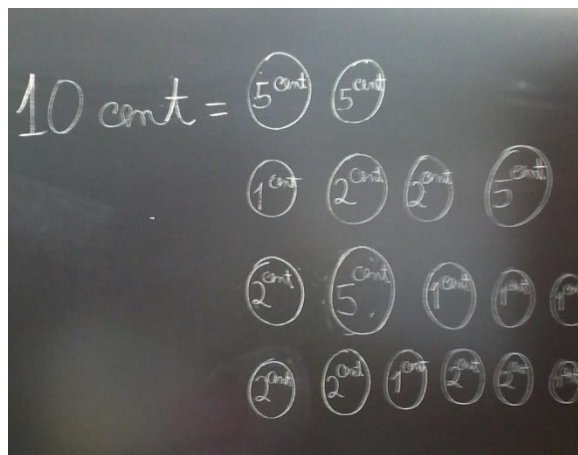 10 cent = 5 cent 5 cent
1 cent 2 cent 2 cent 5 cent
2 cent 5 cent 1 cent 1 cent 1
2 cent 2 cent 1 cent 2 cent 2 cent 1